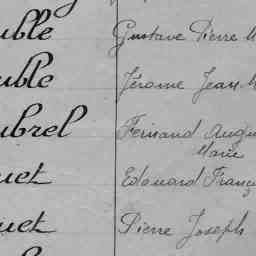 uble Gustave Pierre M
uble Jérome Jean M
ubrel Fernand Augu
Marie
uet Edouard Franç
uet Pierre Joseph